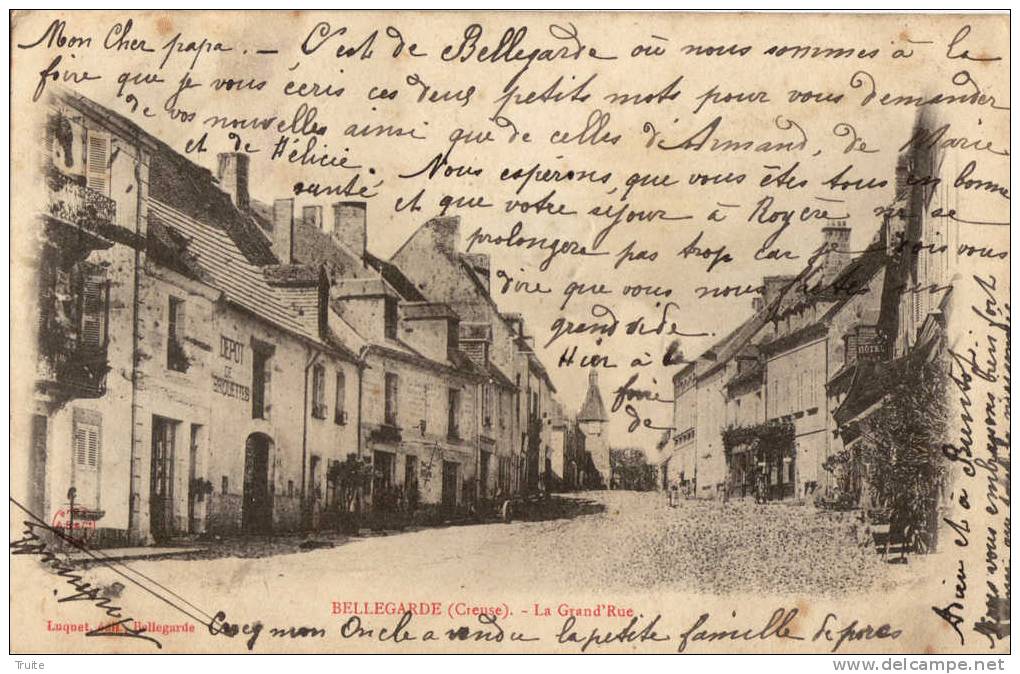 Mon Cher papa. — C'est de Bellegarde où nous sommes à la
foire que je vous écris ces deux petits mots pour vous demander
de vos nouvelles ainsi que de celles d'Armand, de Marie
et de Hélicie. Nous espérons que vous êtes tous en bonne
santé et que votre séjour à Royère ne se
prolongera pas trop car je vois vous
dire que vous nous faites un
grand vide.
Hier à la
foire de
Crocq mon Oncle a vendu la petite famille de porcs
Adieu et à Bientôt.
Nous vous embrassons bien fort
DEPOT
DE
BRIQUETTES
HOTEL
BELLEGARDE (Creuse). - La Grand'Rue
Luquet, édit., Bellegarde
Truite
www.delcampe.net